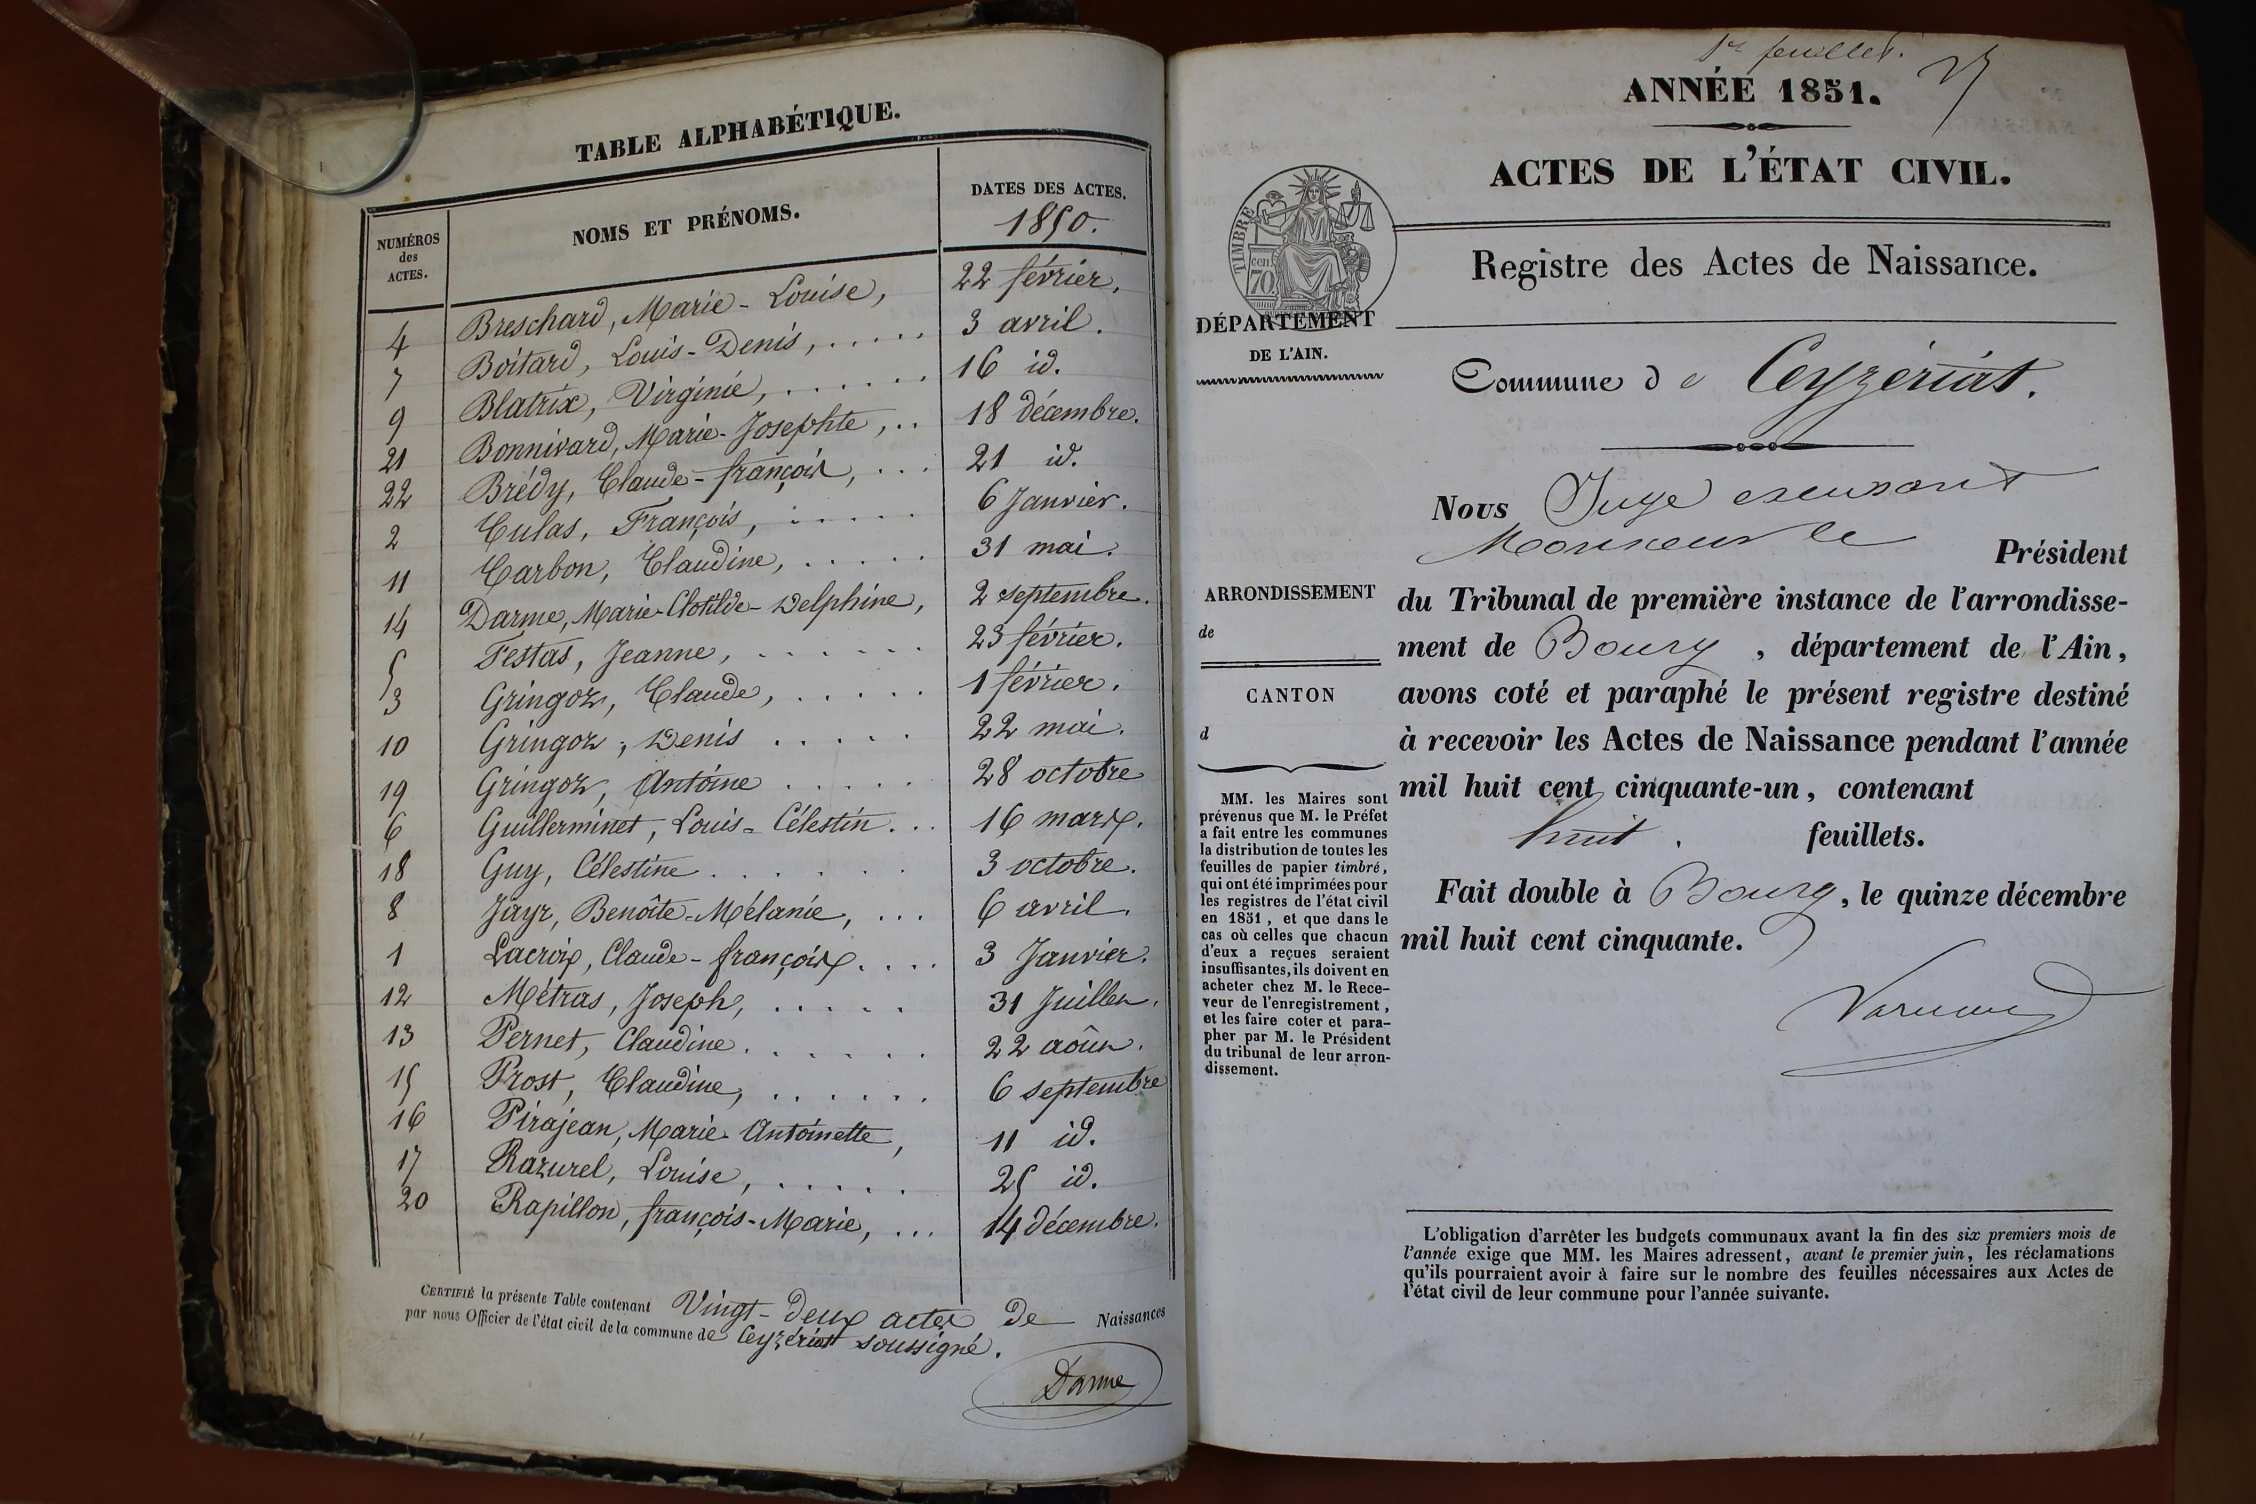 TABLE ALPHABÉTIQUE.
NUMÉROS des ACTES. NOMS ET PRÉNOMS. DATES DES ACTES.
1850.
4 Breschard, Marie-Louise, 22 février.
7 Boitard, Louis-Denis, ..... 3 avril.
9 Blatrix, Virginie, ...... 16 id.
21 Bonnivard, Marie-Josephte, .. 18 décembre.
22 Brédy, Claude-françois, ... 21 id.
2 Culas, François, ..... 6 Janvier.
11 Carbon, Claudine, ..... 31 mai.
14 Darme, Marie-Clotilde-Delphine, 2 septembre.
5 Festas, Jeanne, ...... 23 février.
3 Gringoz, Claude, ..... 1 février.
10 Gringoz, Denis ..... 22 mai.
19 Gringoz, Antoine ..... 28 octobre
6 Guillerminet, Louis-Célestin... 16 mars.
18 Guy, Célestine ...... 3 octobre.
8 Jayr, Benoîte-Mélanie, ... 6 avril.
1 Lacroix, Claude-françois.... 3 Janvier.
12 Métras, Joseph, ..... 31 Juillet.
13 Pernet, Claudine...... 22 août.
15 Prost, Claudine, ...... 6 septembre
16 Pirajean, Marie-Antoinette, 11 id.
17 Razurel, Louise, ..... 25 id.
20 Rapillon, françois-Marie, ... 14 décembre.
CERTIFIÉ la présente Table contenant Vingt-deux actes de Naissances
par nous Officier de l'état civil de la commune de Ceyzériat soussigné.
Darme
1er feuillet.
ANNÉE 1851.
ACTES DE L'ÉTAT CIVIL.
TIMBRE
70 cen.
Registre des Actes de Naissance.
DÉPARTEMENT
DE L'AIN.
Commune de Ceyzériat.
Nous Juge excusant
Monsieur le Président
du Tribunal de première instance de l'arrondisse-
ment de Bourg, département de l'Ain,
avons coté et paraphé le présent registre destiné
à recevoir les Actes de Naissance pendant l'année
mil huit cent cinquante-un, contenant
huit. feuillets.
Fait double à Bourg, le quinze décembre
mil huit cent cinquante.
ARRONDISSEMENT
de
CANTON
d
MM. les Maires sont
prévenus que M. le Préfet
a fait entre les communes
la distribution de toutes les
feuilles de papier timbré,
qui ont été imprimées pour
les registres de l'état civil
en 1851, et que dans le
cas où celles que chacun
d'eux a reçues seraient
insuffisantes, ils doivent en
acheter chez M. le Rece-
veur de l'enregistrement,
et les faire coter et para-
pher par M. le Président
du tribunal de leur arron-
dissement.
L'obligation d'arrêter les budgets communaux avant la fin des six premiers mois de
l'année exige que MM. les Maires adressent, avant le premier juin, les réclamations
qu'ils pourraient avoir à faire sur le nombre des feuilles nécessaires aux Actes de
l'état civil de leur commune pour l'année suivante.